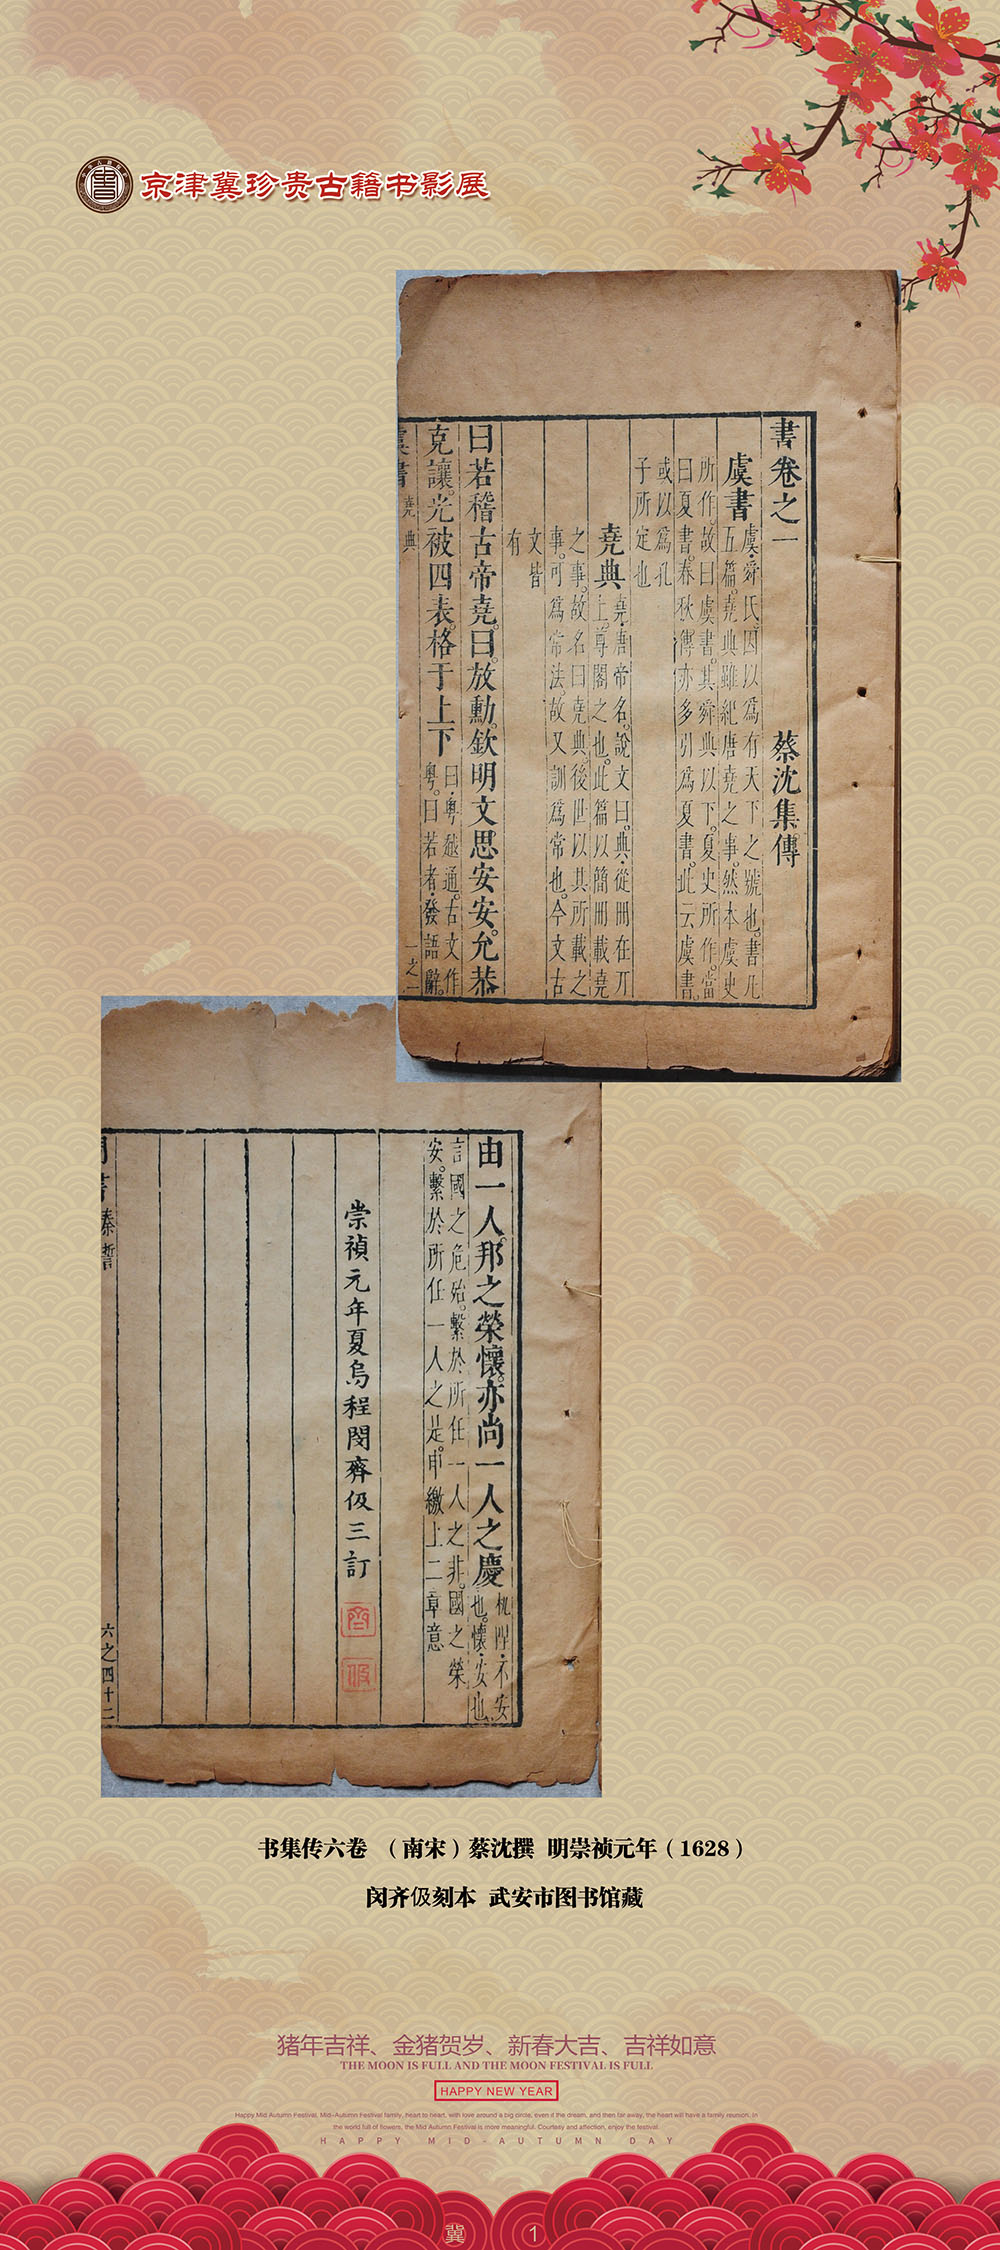 京津冀珍贵古籍书影展
書卷之一
蔡沈集傳
虞書
虞舜氏因以爲有天下之號也書凡
五篇堯典雖紀唐堯之事然本虞史
所作故曰虞書其舜典以下夏史所作當
曰夏書春秋傳亦多引爲夏書此云虞書
或以爲孔
子所定也
堯典
堯唐帝名說文曰典從冊在丌
上尊閣之也此篇以簡冊載堯
之事故名曰堯典後世以其所載之
事可爲常法故又訓爲常也今文古
文皆
有
曰若稽古帝堯曰放勳欽明文思安安允恭
克讓光被四表格于上下
曰粤越通古文作
粤曰若者發語辭
堯典
一之一
由一人邦之榮懷亦尚一人之慶
杌隉不安
也懷安也
言國之危殆繫於所任一人之非國之榮
安繫於所任一人之是申繳上二章意
崇禎元年夏烏程閔齊伋三訂
齊
伋
秦誓
六之四十二
书集传六卷 （南宋）蔡沈撰 明崇祯元年（1628）
闵齐伋刻本 武安市图书馆藏
猪年吉祥、金猪贺岁、新春大吉、吉祥如意
THE MOON IS FULL AND THE MOON FESTIVAL IS FULL
HAPPY NEW YEAR
Happy Mid Autumn Festival, Mid-Autumn Festival family, heart to heart, with love around a big circle, even if the dream, and then far away, the heart will have a family reunion. In
the world full of flowers, the Mid Autumn Festival is more meaningful. Courtesy and affection, enjoy the festival.
HAPPY MID-AUTUMN DAY
冀 1